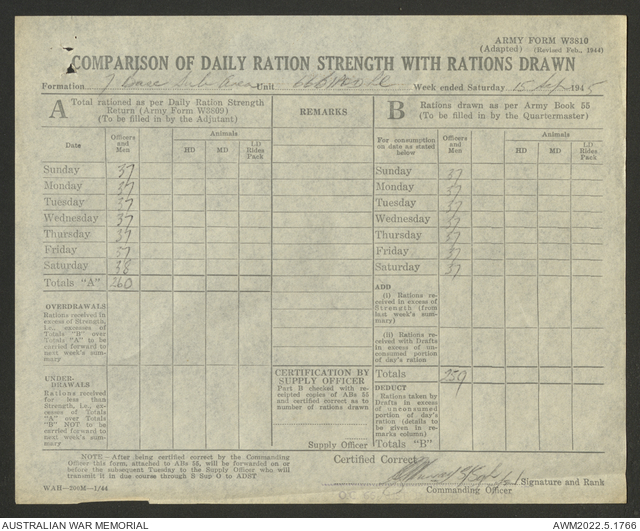 ARMY FORM W3810
(Adapted) (Revised Feb., 1944)
COMPARISON OF DAILY RATION STRENGTH WITH RATIONS DRAWN
Formation 7 Base Sub Area Unit Week ended Saturday 15 Sep 1945
A Total rationed as per Daily Ration Strength Return (Army Form W3809) (To be filled in by the Adjutant)
REMARKS
B Rations drawn as per Army Book 55 (To be filled in by the Quartermaster)
Date Officers and Men Animals HD MD LD Rides Pack
For consumption on date as stated below Officers and Men Animals HD MD LD Rides Pack
Sunday 37 Sunday 37
Monday 37 Monday 37
Tuesday 37 Tuesday 37
Wednesday 37 Wednesday 37
Thursday 37 Thursday 37
Friday 37 Friday 37
Saturday 38 Saturday 37
Totals "A" 260
ADD
(i) Rations received in excess of Strength (from last week's summary)
(ii) Rations received with Drafts in excess of unconsumed portion of day's ration
OVERDRAWALS
Rations received in excess of Strength, i.e., excesses of Totals "B" over Totals "A" to be carried forward to next week's summary
UNDER-DRAWALS
Rations received for less than Strength, i.e., excess of Totals "A" over Totals "B" NOT to be carried forward to next week's summary
CERTIFICATION BY SUPPLY OFFICER
Part B checked with receipted copies of ABs 55 and certified correct as to number of rations drawn
Supply Officer
Totals 259
DEDUCT
Rations taken by Drafts in excess of unconsumed portion of day's ration (details to be given in remarks column)
Totals "B"
NOTE—After being certified correct by the Commanding Officer this form, attached to ABs 55, will be forwarded on or before the subsequent Tuesday to the Supply Officer who will transmit B in due course through B Sup O to ADST
Certified Correct
Signature and Rank
Commanding Officer
WAH—200M—1/44
AUSTRALIAN WAR MEMORIAL
AWM2022.5.1766